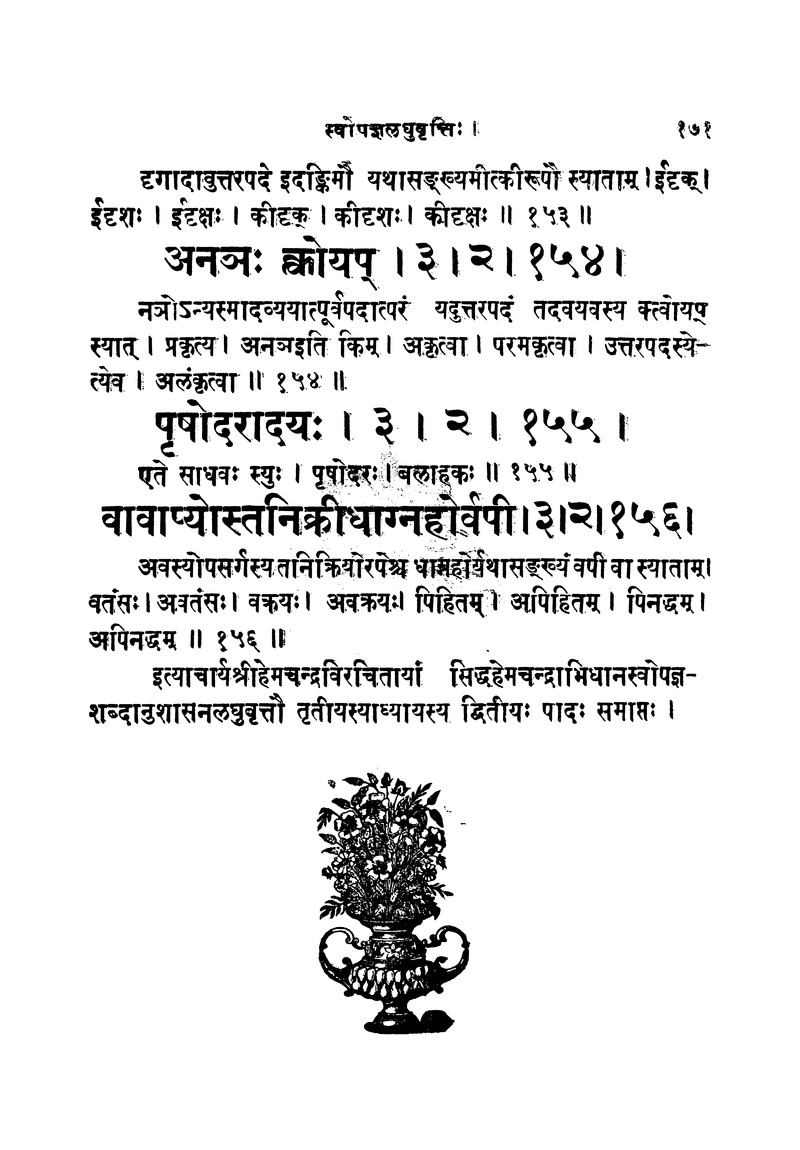 स्वोपज्ञलघुवृत्तिः । १७१
दृगादावुत्तरपदे इदङ्किमौ यथासङ्ख्यमीत्कीरूपौ स्याताम् । ईदृक् ।
ईदृशः । ईदृक्षः । कीदृक् । कीदृशः । कीदृक्षः ॥ १५३ ॥
अनञः क्त्वोयप् । ३ । २ । १५४ ।
नञोऽन्यस्मादव्ययात्पूर्वपदात्परं यदुत्तरपदं तदवयवस्य क्त्वोयप्
स्यात् । प्रकृत्य । अनञइति किम् । अकृत्वा । परमकृत्वा । उत्तरपदस्ये-
त्येव । अलंकृत्वा ॥ १५४ ॥
पृषोदरादयः । ३ । २ । १५५ ।
एते साधवः स्युः । पृषोदरः । बलाहकः ॥ १५५ ॥
वावाप्योस्तनिक्रीधाग्नहोर्वपी । ३ । २ । १५६ ।
अवस्योपसर्गस्य तानिक्रियोरपेश्च धाग्नहोर्यथासङ्ख्यं वपी वा स्याताम् ।
वतंसः । अवतंसः । वक्रयः । अवक्रयः । पिहितम् । अपिहितम् । पिनद्धम् ।
अपिनद्धम् ॥ १५६ ॥
इत्याचार्यश्रीहेमचन्द्रविरचितायां सिद्धहेमचन्द्राभिधानस्वोपज्ञ-
शब्दानुशासनलघुवृत्तौ तृतीयस्याध्यायस्य द्वितीयः पादः समाप्तः ।